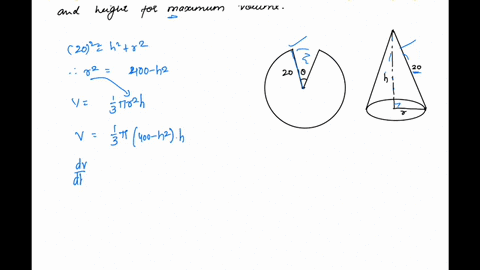 and height for maximum volume.
(20)² = h² + r²
∴ r² = 400 - h²
V = 1/3 πr²h
V = 1/3 π (400 - h²) . h
dv/dh
20 θ
h 20
r